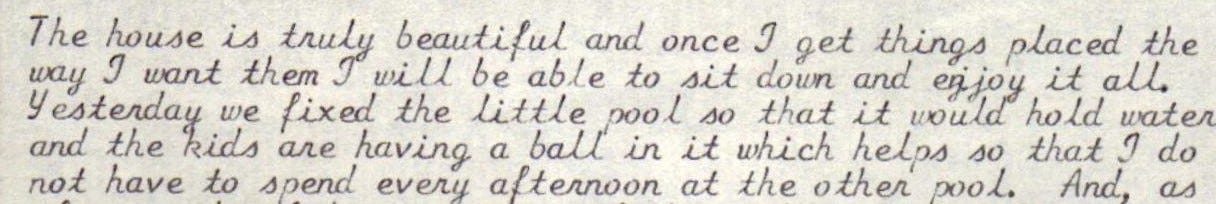 The house is truly beautiful and once I get things placed the
way I want them I will be able to sit down and enjoy it all.
Yesterday we fixed the little pool so that it would hold water
and the kids are having a ball in it which helps so that I do
not have to spend every afternoon at the other pool. And, as